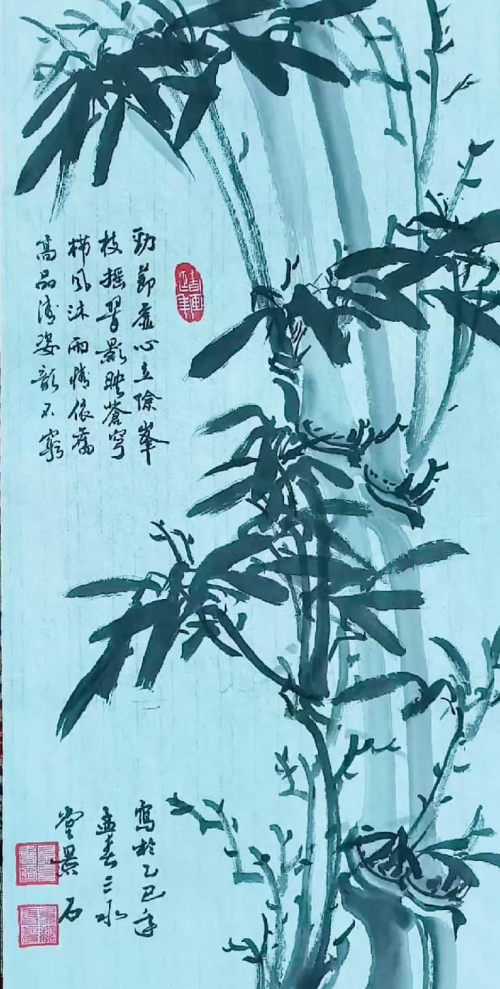 勁節虛心立險峯
枝摇翠影映蒼穹
栉风沐雨情依舊
高品清姿韵不窮
寫於乙巳年
孟春三水
景石